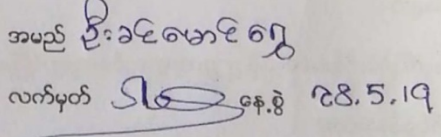 အမည် ဦးခင်မောင်ရွှေ
လက်မှတ် နေ့စွဲ 28.5.19